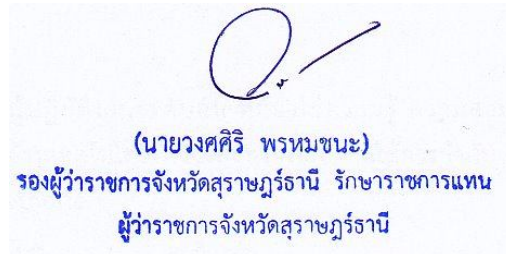 (นายวงศศิริ พรหมชนะ)
รองผู้ว่าราชการจังหวัดสุราษฎร์ธานี รักษาราชการแทน
ผู้ว่าราชการจังหวัดสุราษฎร์ธานี